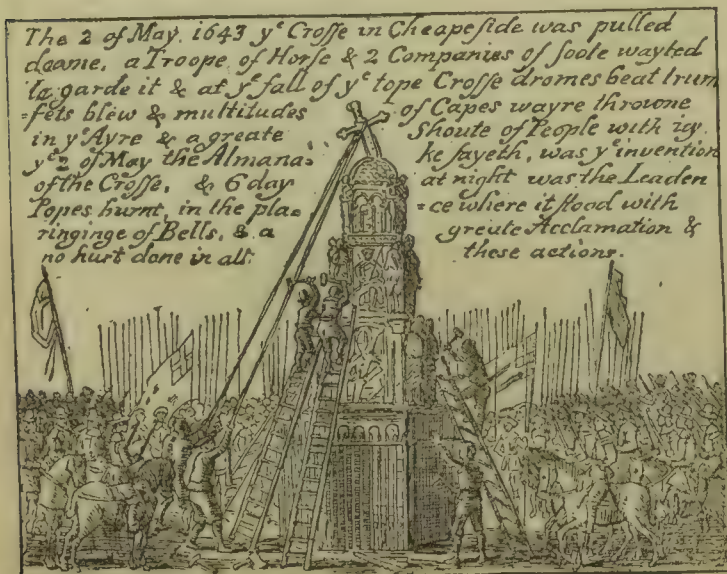 The 2 of May. 1643 yᵉ Crosse in Cheapeside was pulled
downe, a Troope of Horse & 2 Companies of foote wayted
to garde it & at yᵉ fall of yᵉ tope Crosse dromes beat trum
=pets blew & multitudes of Capes wayre throwne
in yᵉ Ayre & a greate Shoute of People with ioy,
yᵉ 2 of May the Almana= ke sayeth, was yᵉ invention
of the Crosse, & 6 day at night was the Leaden
Popes burnt, in the pla= =ce where it stood with
ringinge of Bells, & a greate Acclamation &
no hurt done in all these actions.